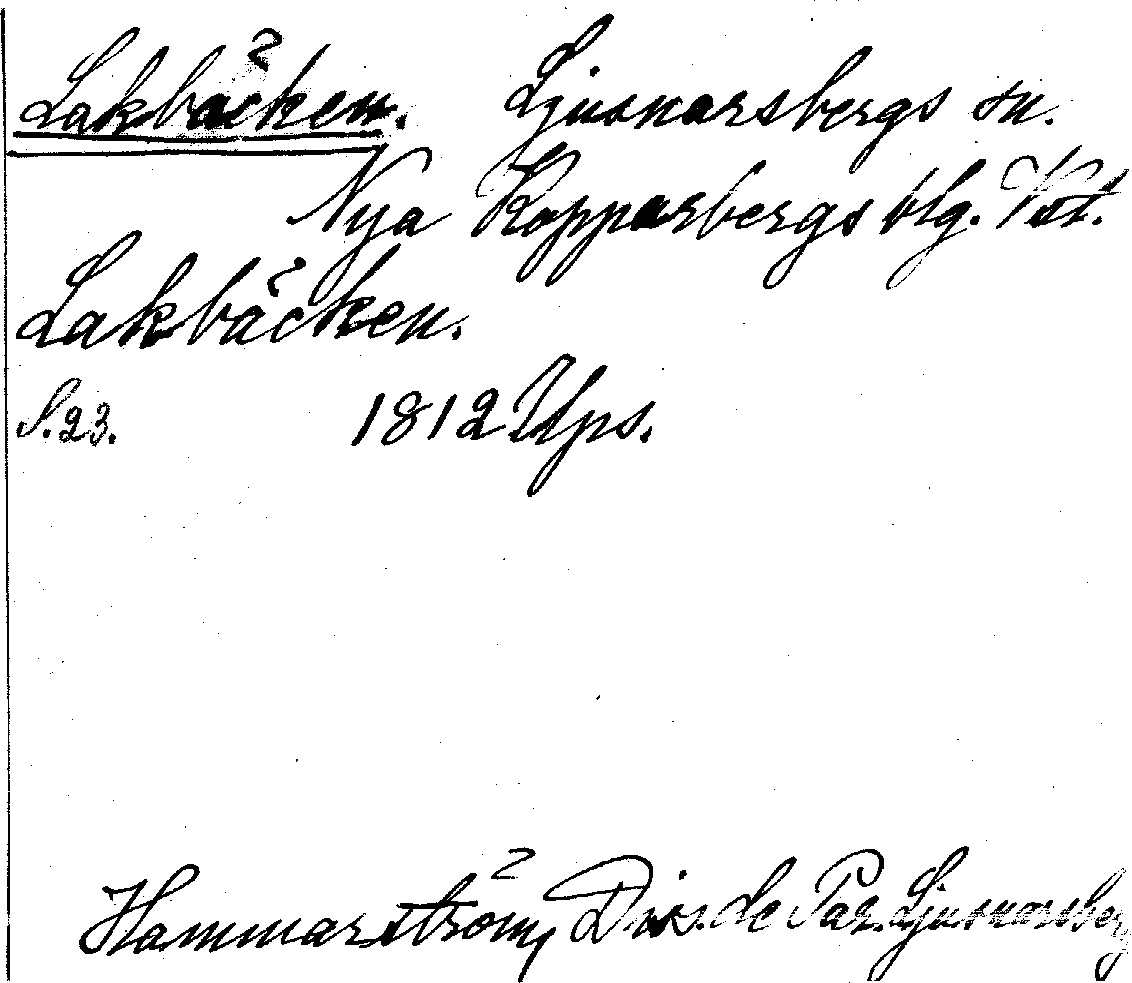 Lakbäcken. Ljusnarsbergs sn.
Nya Kopparbergs blg. Vstm.
Lakbäcken.
S. 23. 1812 Ups.
Hammarström, Diss. de Par. Ljusnarsberg